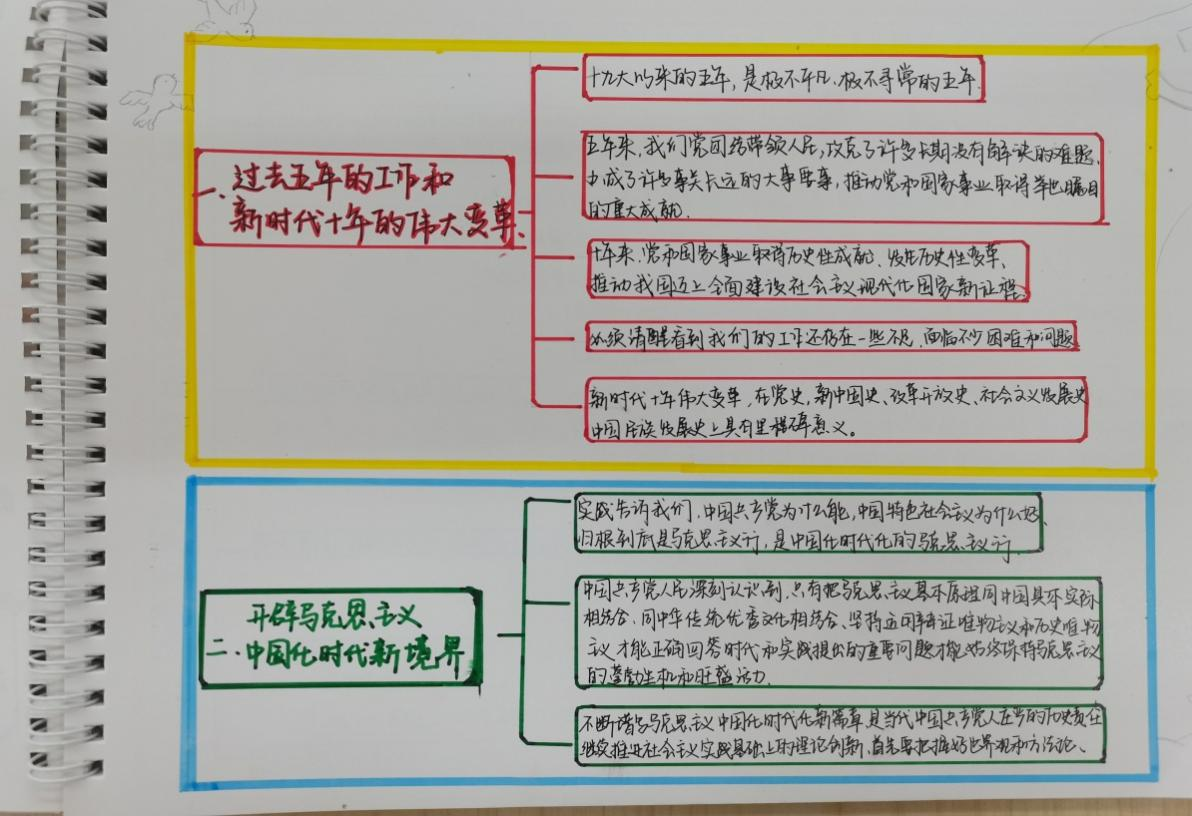 一、过去五年的工作和
新时代十年的伟大变革、
十九大以来的五年，是极不平凡、极不寻常的五年
五年来，我们党团结带领人民，攻克了许多长期没有解决的难题、
办成了许多事关长远的大事要事，推动党和国家事业取得举世瞩目
的重大成就.
十年来、党和国家事业取得历史性成就、发生历史性变革、
推动我国迈上全面建设社会主义现代化国家新征程。
必须清醒看到我们的工作还存在一些不足，面临不少困难和问题
新时代十年伟大变革，在党史，新中国史、改革开放史、社会主义发展史
中国民族发展史上具有里程碑意义。
二、开辟马克思主义
中国化时代新境界
实践告诉我们，中国共产党为什么能，中国特色社会主义为什么好、
归根到底是马克思主义行，是中国化时代化的马克思主义行.
中国共产党人民深刻认识到，只有把马克思主义基本原理同中国具体实际
相结合、同中华传统优秀文化相结合、坚持运用辩证唯物主义和历史唯物
主义，才能正确回答时代和实践提出的重要问题才能始终保持马克思主义
的蓬勃生机和旺盛活力.
不断谱写马克思主义中国化时代化新篇章，是当代中国共产党人庄严的历史责任
继续推进社会主义实践基础上的理论创新，首先要把握好世界观和方法论、